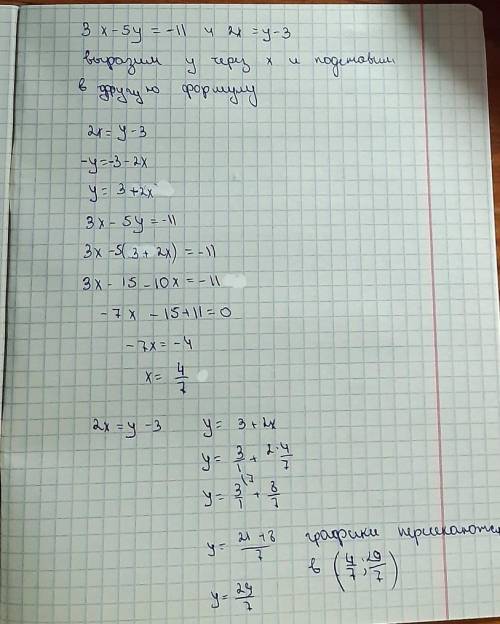 3x-5y = -11 и 2x = y-3
выразим y через x и подставим
в другую формулу
2x = y-3
-y=-3-2x
y = 3+2x
3x-5y=-11
3x-5(3+2x)=-11
3x-15-10x=-11
-7x -15+11=0
-7x=-4
x= 4/7
2x=y-3 y= 3+2x
y= 3/1 + 2·4/7
y= 3/1 \7 + 8/7
y= 21+8/7 графики
в (4/7; 29/7)
y= 29/7